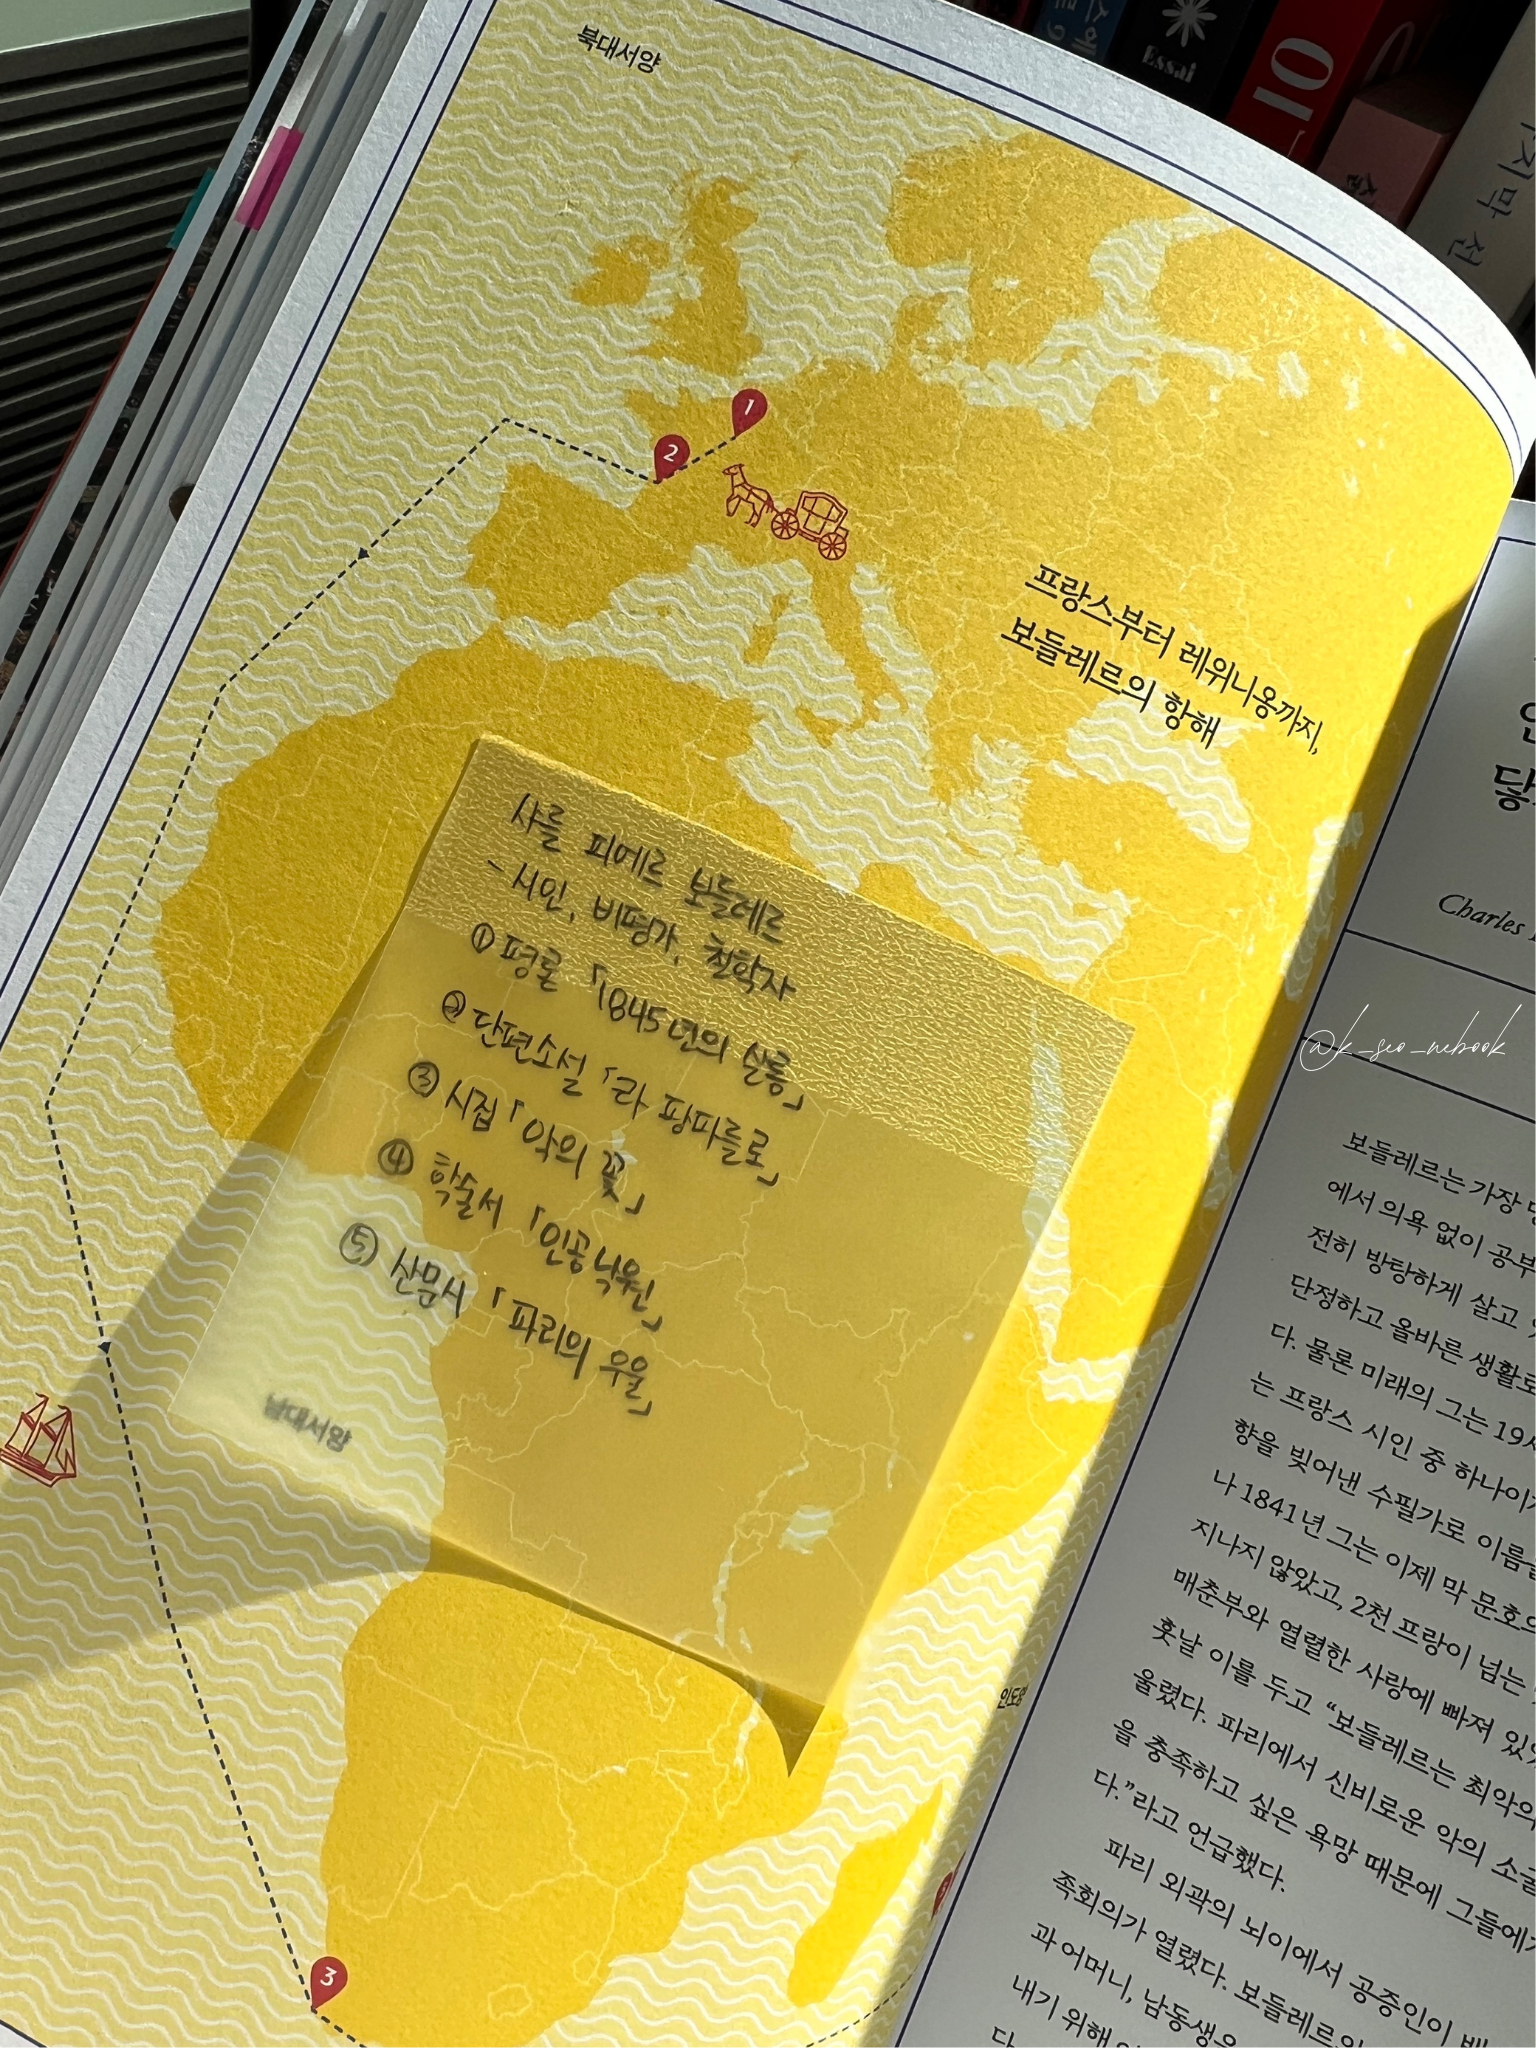 북대서양
Essai
10
지막 선
1
2
프랑스부터 레위니옹까지,
보들레르의 항해
샤를 피에르 보들레르
- 시인, 비평가, 철학자
① 평론 「1845년의 살롱」
② 단편소설 「라 팡파를로」
③ 시집 「악의 꽃」
④ 학술서 「인공낙원」
⑤ 산문시 「파리의 우울」
남대서양
인도양
3
Charles
@k_seo_nebook
보들레르는 가장
에서 의욕 없이 공부
전히 방탕하게 살고
단정하고 올바른 생활로
다. 물론 미래의 그는 19세
는 프랑스 시인 중 하나이
향을 빚어낸 수필가로 이름을
나 1841년 그는 이제 막 문호의
지나지 않았고, 2천 프랑이 넘는
매춘부와 열렬한 사랑에 빠져 있
훗날 이를 두고 “보들레르는 최악의
울렸다. 파리에서 신비로운 악의 소굴
을 충족하고 싶은 욕망 때문에 그들에게
다.”라고 언급했다.
파리 외곽의 뇌이에서 공증인이 배
족회의가 열렸다. 보들레르의
과 어머니, 남동생을
내기 위해
다